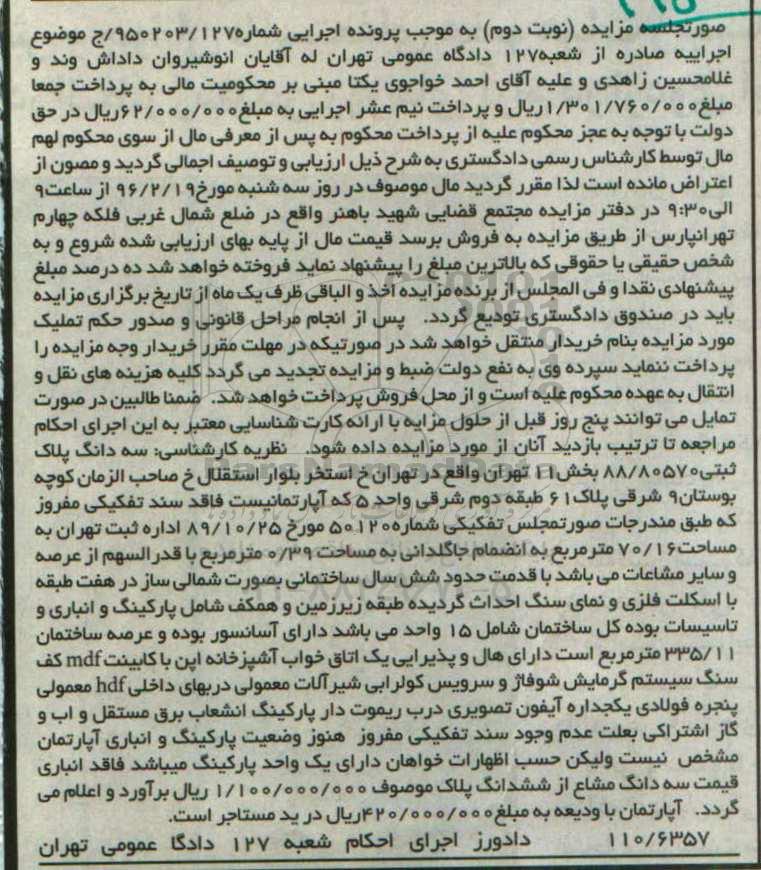 صورتجلسه مزایده (نوبت دوم) به موجب پرونده اجرایی شماره۹۵۰۲۰۳/۱۲۷/ج موضوع
اجراییه صادره از شعبه۱۲۷ دادگاه عمومی تهران له آقایان انوشیروان داداش وند و
غلامحسین زاهدی و علیه آقای احمد خواجوی یکتا مبنی بر محکومیت مالی به پرداخت جمعا
مبلغ۱/۳۰۱/۷۶۰/۰۰۰ریال و پرداخت نیم عشر اجرایی به مبلغ۶۲/۰۰۰/۰۰۰ریال در حق
دولت با توجه به عجز محکوم علیه از پرداخت محکوم به پس از معرفی مال از سوی محکوم لهم
مال توسط کارشناس رسمی دادگستری به شرح ذیل ارزیابی و توصیف اجمالی گردید و مصون از
اعتراض مانده است لذا مقرر گردید مال موصوف در روز سه شنبه مورخ۹۶/۲/۱۹ از ساعت۹
الی۹:۳۰ در دفتر مزایده مجتمع قضایی شهید باهنر واقع در ضلع شمال غربی فلکه چهارم
تهرانپارس از طریق مزایده به فروش برسد قیمت مال از پایه بهای ارزیابی شده شروع و به
شخص حقیقی یا حقوقی که بالاترین مبلغ را پیشنهاد نماید فروخته خواهد شد ده درصد مبلغ
پیشنهادی نقدا و فی المجلس از برنده مزایده اخذ و الباقی ظرف یک ماه از تاریخ برگزاری مزایده
باید در صندوق دادگستری تودیع گردد. پس از انجام مراحل قانونی و صدور حکم تملیک
مورد مزایده بنام خریدار منتقل خواهد شد در صورتیکه در مهلت مقرر خریدار وجه مزایده را
پرداخت ننماید سپرده وی به نفع دولت ضبط و مزایده تجدید می گردد کلیه هزینه های نقل و
انتقال به عهده محکوم علیه است و از محل فروش پرداخت خواهد شد. ضمنا طالبین در صورت
تمایل می توانند پنج روز قبل از حلول مزایه با ارائه کارت شناسایی معتبر به این اجرای احکام
مراجعه تا ترتیب بازدید آنان از مورد مزایده داده شود. نظریه کارشناسی: سه دانگ پلاک
ثبتی۸۸/۸۰۵۷۰ بخش۱۱ تهران واقع در تهران خ استخر بلوار استقلال خ صاحب الزمان کوچه
بوستان۹ شرقی پلاک۶۱ طبقه دوم شرقی واحد ۵ که آپارتمانیست فاقد سند تفکیکی مفروز
که طبق مندرجات صورتمجلس تفکیکی شماره۵۰۱۲۰ مورخ ۸۹/۱۰/۲۵ اداره ثبت تهران به
مساحت۷۰/۱۶ مترمربع به انضمام جاگلدانی به مساحت ۰/۳۹ مترمربع با قدرالسهم از عرصه
و سایر مشاعات می باشد با قدمت حدود شش سال ساختمانی بصورت شمالی ساز در هفت طبقه
با اسکلت فلزی و نمای سنگ احداث گردیده طبقه زیرزمین و همکف شامل پارکینگ و انباری و
تاسیسات بوده کل ساختمان شامل ۱۵ واحد می باشد دارای آسانسور بوده و عرصه ساختمان
۳۳۵/۱۱ مترمربع است دارای هال و پذیرایی یک اتاق خواب آشپزخانه اپن با کابینت mdf کف
سنگ سیستم گرمایش شوفاژ و سرویس کولرابی شیرآلات معمولی دربهای داخلی hdf معمولی
پنجره فولادی یکجداره آیفون تصویری درب ریموت دار پارکینگ انشعاب برق مستقل و اب و
گاز اشتراکی بعلت عدم وجود سند تفکیکی مفروز هنوز وضعیت پارکینگ و انباری آپارتمان
مشخص نیست ولیکن حسب اظهارات خواهان دارای یک واحد پارکینگ میباشد فاقد انباری
قیمت سه دانگ مشاع از ششدانگ پلاک موصوف ۱/۱۰۰/۰۰۰/۰۰۰ ریال برآورد و اعلام می
گردد. آپارتمان با ودیعه به مبلغ۴۲۰/۰۰۰/۰۰۰ریال در ید مستاجر است.
۱۱۰/۶۳۵۷ دادورز اجرای احکام شعبه ۱۲۷ دادگا عمومی تهران